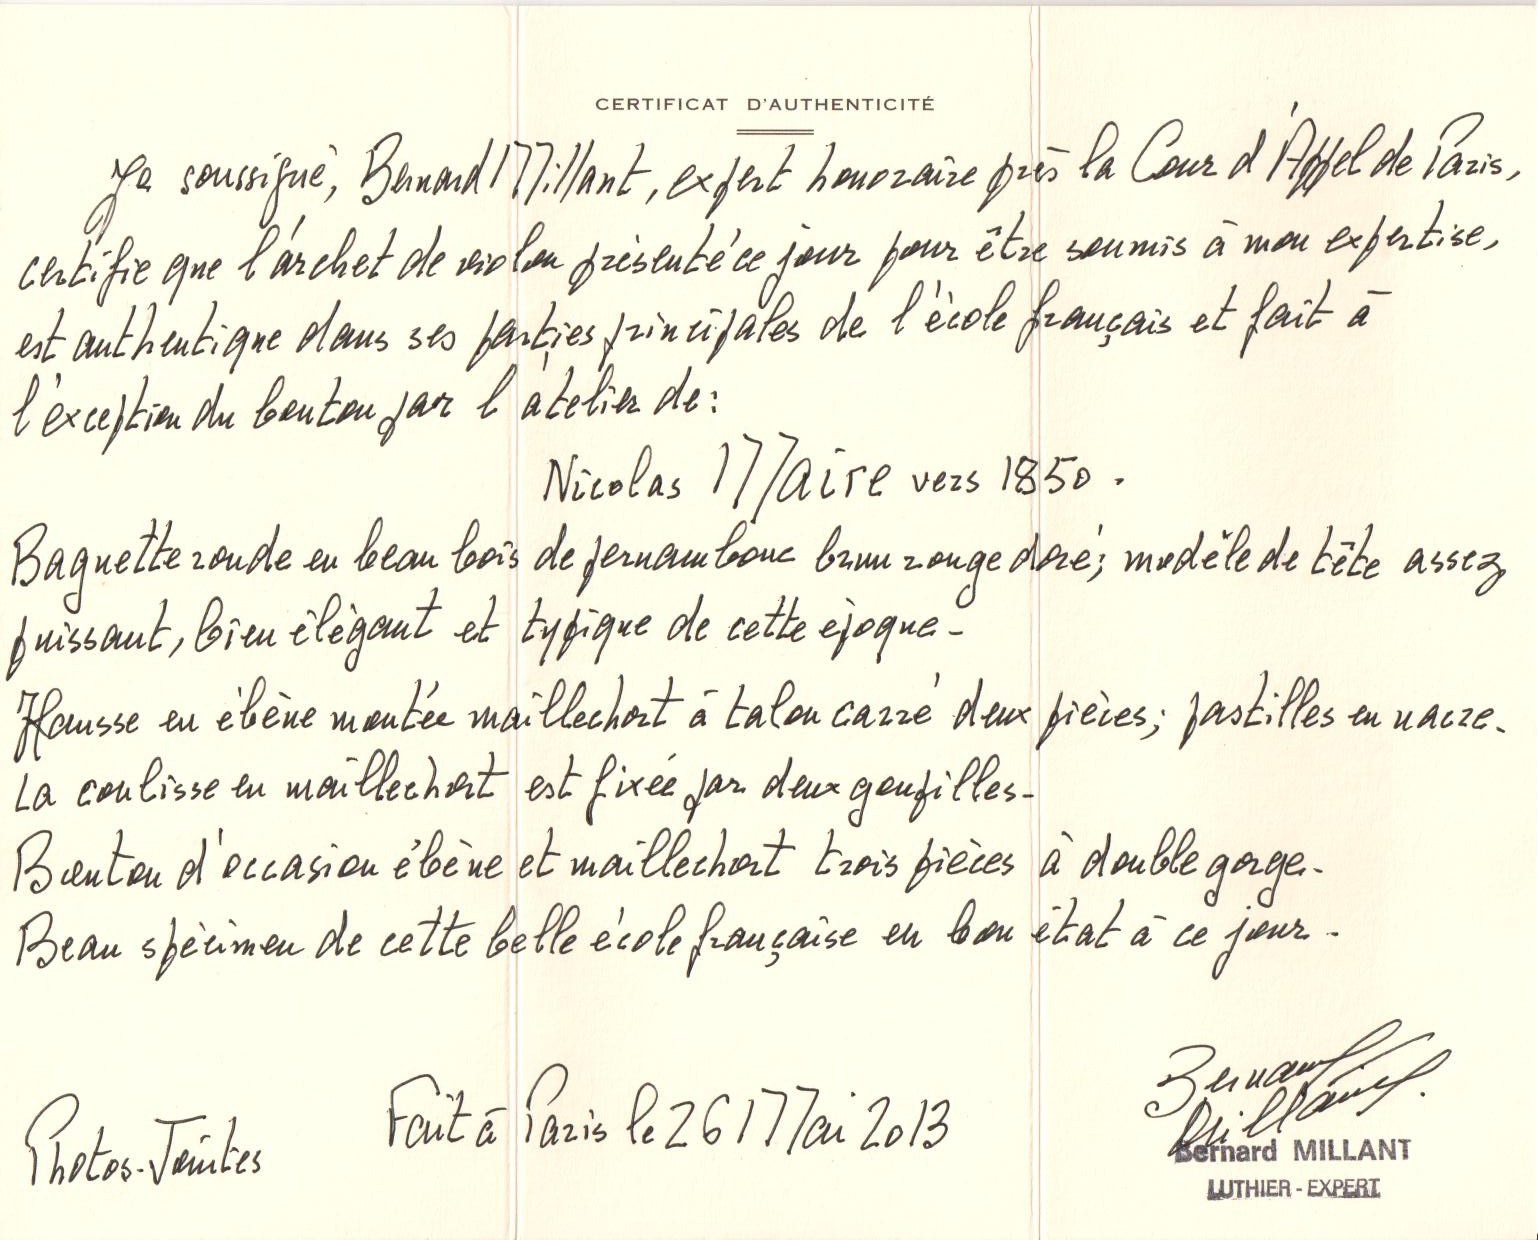 CERTIFICAT D'AUTHENTICITÉ
Je soussigné, Bernard Millant, expert honoraire près la Cour d'Appel de Paris,
certifie que l'archet de violon présenté ce jour pour être soumis à mon expertise,
est authentique dans ses parties principales de l'école français et fait à
l'exception du bouton par l'atelier de:
Nicolas Maire vers 1850.
Baguette ronde en beau bois de pernambouc brun rouge doré; modèle de tête assez
puissant, bien élégant et typique de cette époque-
Hausse en ébène montée maillechort à talon carré deux pièces; pastilles en nacre.
La coulisse en maillechort est fixée par deux goupilles-
Bouton d'occasion ébène et maillechort trois pièces à double gorge-
Beau spécimen de cette belle école française en bon état à ce jour-
Photos-Jointes
Fait à Paris le 26 Mai 2013
Bernard Millant.
Bernard MILLANT
LUTHIER - EXPERT